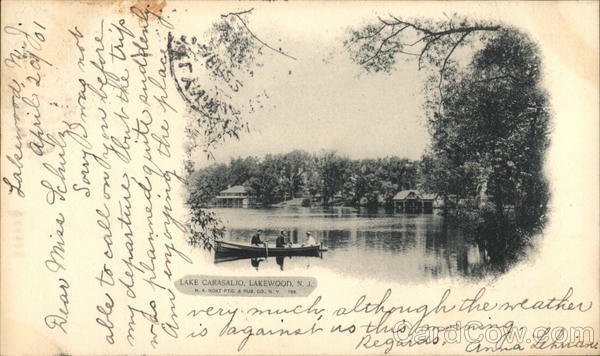 Lakewood N. J.
April 20/01
Dear Miss Schulz
Sorry I was not
able to call on you before
my departure, but the trip
was planned quite suddenly.
Am enjoying the place
very much, although the weather
is against us this morning
Regards.
Anna
LAKE CARASALJO, LAKEWOOD, N. J.
PTG. & PUB. CO., N. Y.
CardCow.com